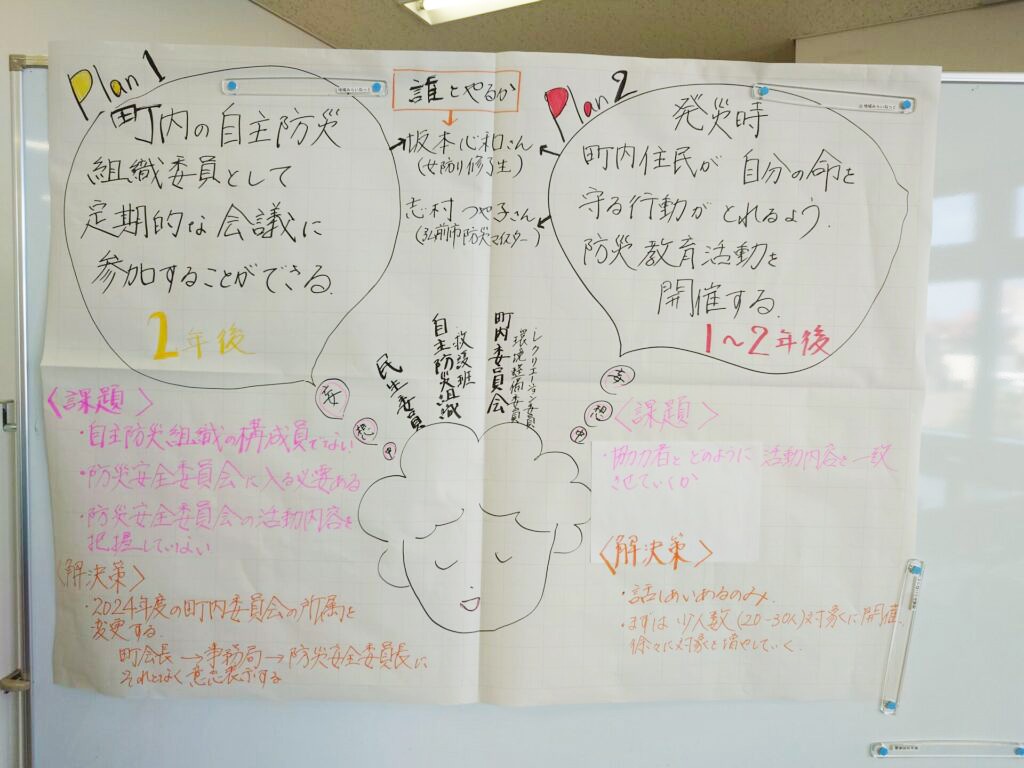 Plan 1
町内の自主防災
組織委員として
定期的な会議に
参加することができる.
2年後
誰とやるか
坂本心和さん
(女防リ修了生)
志村 つや子さん
(弘前市防災マイスター)
Plan 2
発災時
町内住民が 自分の命を
守る行動が とれるよう.
防災教育活動を
開催する.
1〜2年後
民生委員
自主防災組織
救護班
町内委員会
環境整備委員
レクリエーション委員
妄
想
中
妄
想
中
<課題>
・自主防災組織の構成員でない
・防災安全委員会に入る必要ある
・防災安全委員会の活動内容を
把握していない
<解決策>
・2024年度の町内委員会の所属を
変更する.
町会長→事務局→防災安全委員長に
それとなく意志表示する
<課題>
・協力者とどのように 活動内容を一致
させていくか
<解決策>
・話しあいあるのみ.
・まずは 少人数(20-30人)対象に開催、
徐々に対象を増やしていく.
地域みらいねっと